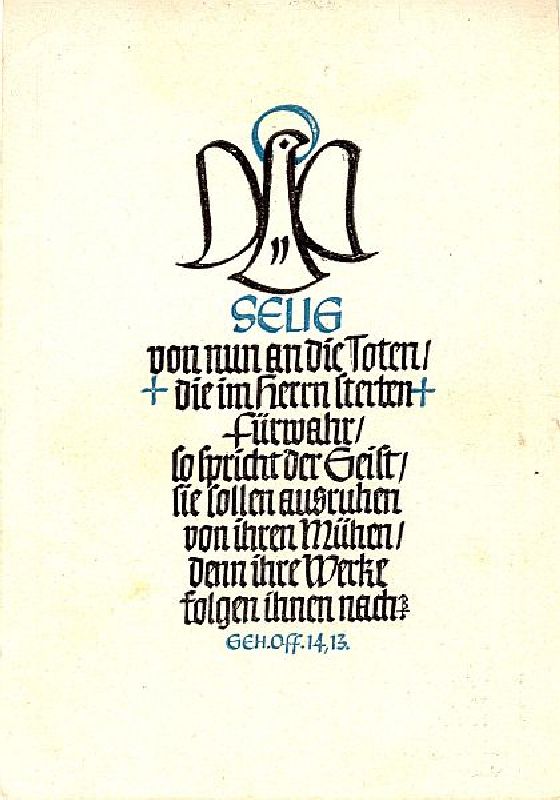 SELIG
von nun an die Toten/
+ die im Herrn sterben +
Fürwahr/
so spricht der Geist/
sie sollen ausruhen
von ihren Mühen/
denn ihre Werke
folgen ihnen nach
GEH.Off.14,13.